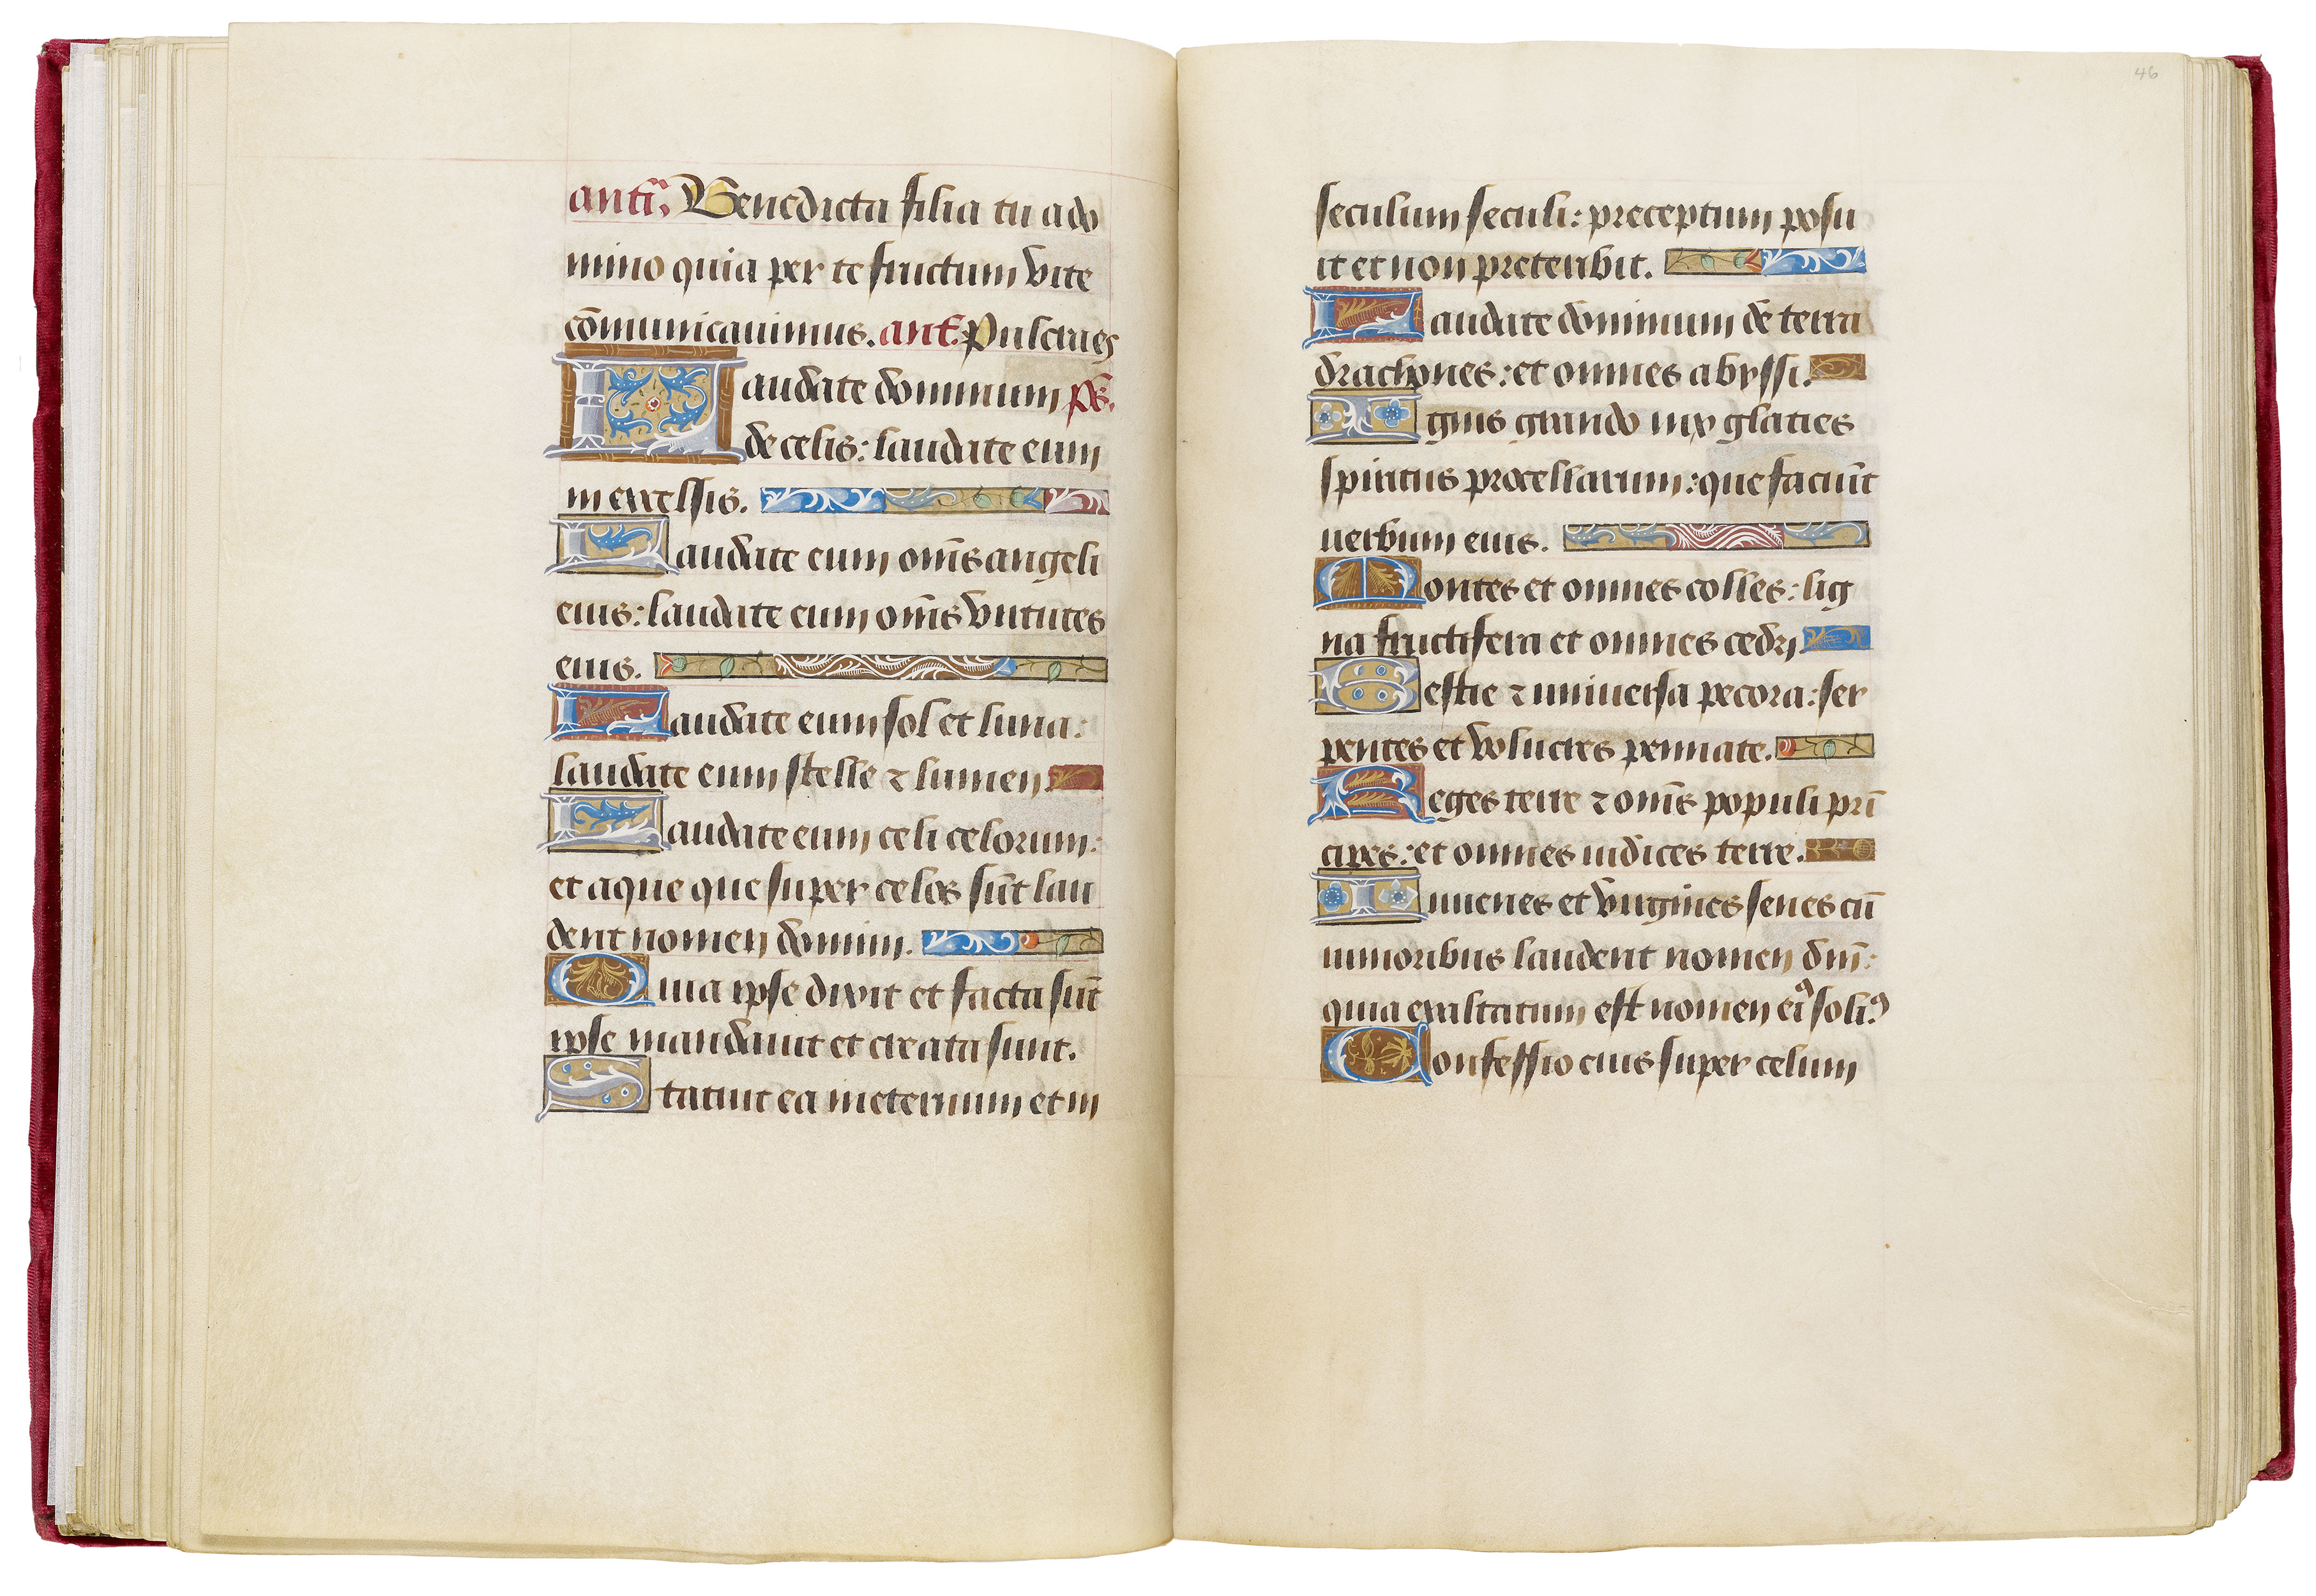 antī. Benedicta filia tu a do
mino quia per te fructum vite
cōmunicauimus. ant. Pulcra es
Laudate dominum ps.
de celis: laudate eum
in excelsis.
Laudate eum oīns angeli
eius: laudate eum oīns virtutes
eius.
Laudate eum sol et luna:
laudate eum stelle ⁊ lumen.
Laudate eum celi celorum:
et aque que super celos sūt lau
dent nomen domini.
Quia ipse dixit et facta sūt
ipse mandauit et creata sunt.
Statuit ea in eternum et in
46
seculum seculi: preceptum posu
it et non preteribit.
Laudate dominum de terra
drachones: et omnes abyssi.
Ignis grando nix glacies
spiritus procellarum: que faciūt
uerbum eius.
Montes et omnes colles: lig
na fructifera et omnes cedri.
Bestie ⁊ uniuersa pecora: ser
pentes et volucres pennate.
Reges terre ⁊ oīns populi prī
cipes: et omnes iudices terre.
Iuuenes et virgines senes cū
iunioribus laudent nomen dnī:
quia exaltatum est nomen eiꝰ soliꝰ
Confessio eius super celum